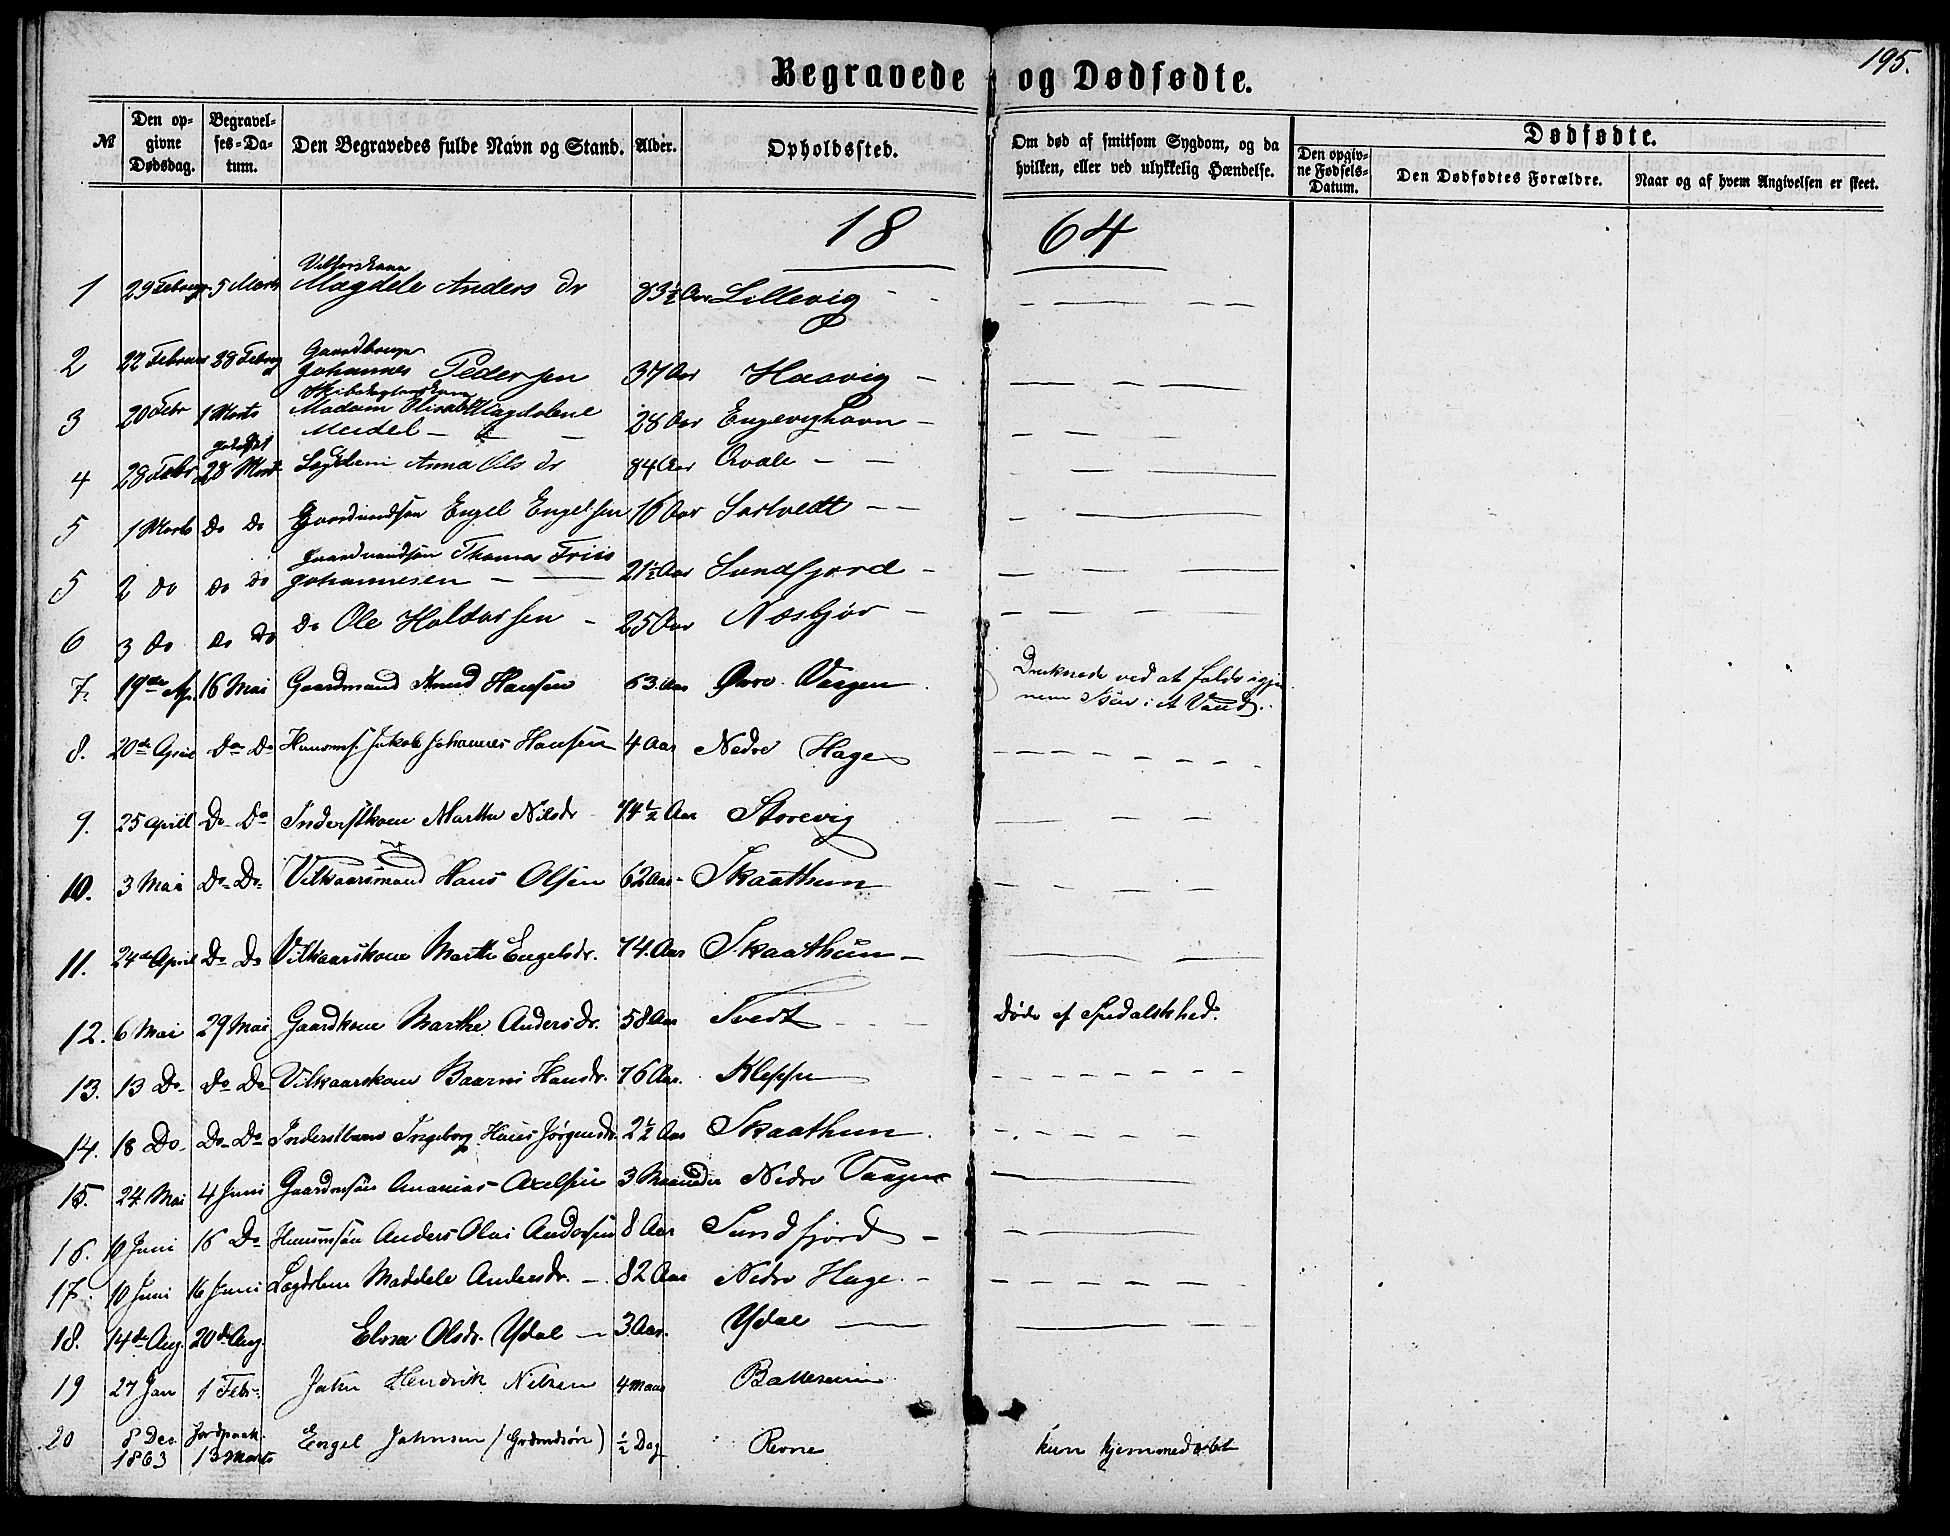 195.
Begravede og Dødfødte.
№ Den op-givne Dødsdag. Begravel-ses-Da-tum. Den Begravedes fulde Navn og Stand. Alder. Opholdssted. Om død af smitsom Sygdom, og da hvilken, eller ved ulykkelig Hændelse. Dødfødte. Den opgiv-ne Fødsels-Datum. Den Dødfødtes Forældre. Naar og af hvem Angivelsen er skeet.
1864
1 29 Februar 5 Marts Magdele Anders dr 83½ Aar Lillevig
2 22 Februar 28 Februar Johannes Pedersen 37 Aar Haavig
3 20 Febr 1 Marts Madam Magdalene Meidel 28 Aar Engevighavn
4 28 Febr 28 Marts Anna Ols dr 84 Aar Qvale
5 1 Marts do do Gaardmandsøn Engel Engelsen 16 Aar Sortvedt
5 2 do do do Gaardmandsøn Thomas Friis Johannesen 21½ Aar Sundfjord
6 3 do do do do Ole Haldorsen 25 Aar Næsbjør
7. 19de Ap. 16 Mai Gaardmand Knud Hansen 63 Aar Øvre Vaagen Druknede ved at falde igjennem Isen i et Vand.
8. 20de April Do Do Huusms. Jakob Johannes Hansen 4 Aar Nedre Hage
9. 25 April Do Do Inderstkone Marthe Nilsdr 44½ Aar Storevig
10. 3 Mai Do Do Vilkaarsmand Hans Olsen 62 Aar Skaathun
11. 24de April Do Do Vilkaarskone Marthe Engelsdr. 74. Aar Skaathun
12. 6 Mai 29 Mai Gaardkone Marthe Andersdr. 58 Aar Tvedt Døde af Spedalskhed.
13. 13 Do Do Do Vilkaarskone Baarni Hansdr. 76 Aar. Kleppe
14. 18 Do Do Do Inderstbarn Ingeborg Hans Jørgensdr. 2½ Aar Skaathun.
15. 24 Mai 4 Juni Gaardmsøn Ananias Axelsen 3 Maaneder Nedre Vaagen
16. 10 Juni 16 Do Huusmsøn Anders Olai Andersen 8 Aar Sundfjord
17. 10 Juni 16 Juni Lægdslem Maddele Andersdr. 82 Aar Nedre Hage
18. 14de Aug. 20de Aug. Elisa Olsdr. Ydal 3. Aar. Ydal
19 27 Jan 1 Febr. John Hendrik Nilsen 4 maan Batteseim
20 8 Dec 1863 Jordpaak. 13 Marts Engel Johnsen (Grdmdsøn) ½ Dag Revne kun hjemmedøbt